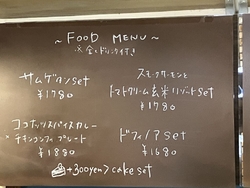 ～FOOD MENU～
※全てドリンク付き!
サムゲタンset
¥1780
スモークサーモンと
トマトクリーム玄米リゾットset
¥1780
ココナッツスパイスカレー
×チキンコンフィプレート
¥1880
ドフィノアset
¥1680
+300yen♪cake set